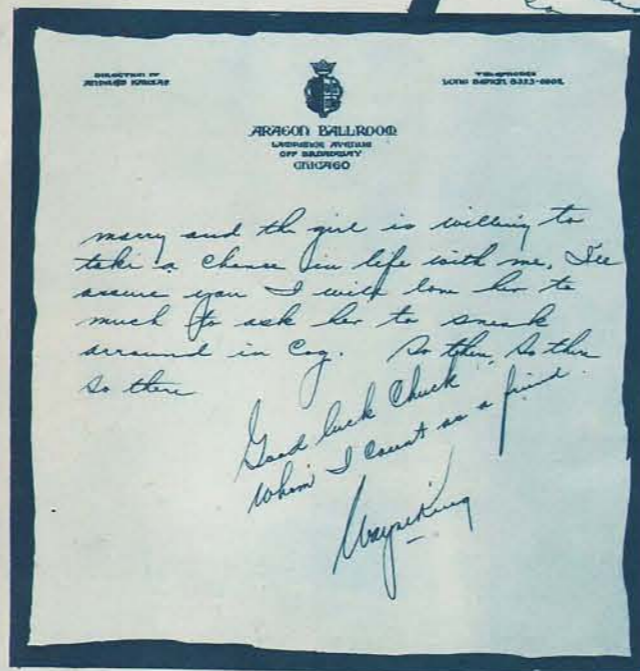 DIRECTION OF
ANDREW KARZAS
TELEPHONES
LONG BEACH
ARAGON BALLROOM
LAWRENCE AVENUE
OFF BROADWAY
CHICAGO
marry and the girl is willing to
take a chance in life with me, I'll
assure you I will love her to
much to ask her to sneak
arround in Cog. So there, So there
So there
Good luck Chuck
whom I count as a friend.
Wayne King